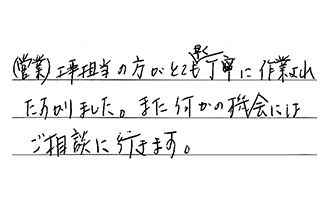 (営業)工事担当の方がとても早く丁寧に作業され
たすかりました。また何かの機会には
ご相談に行きます。